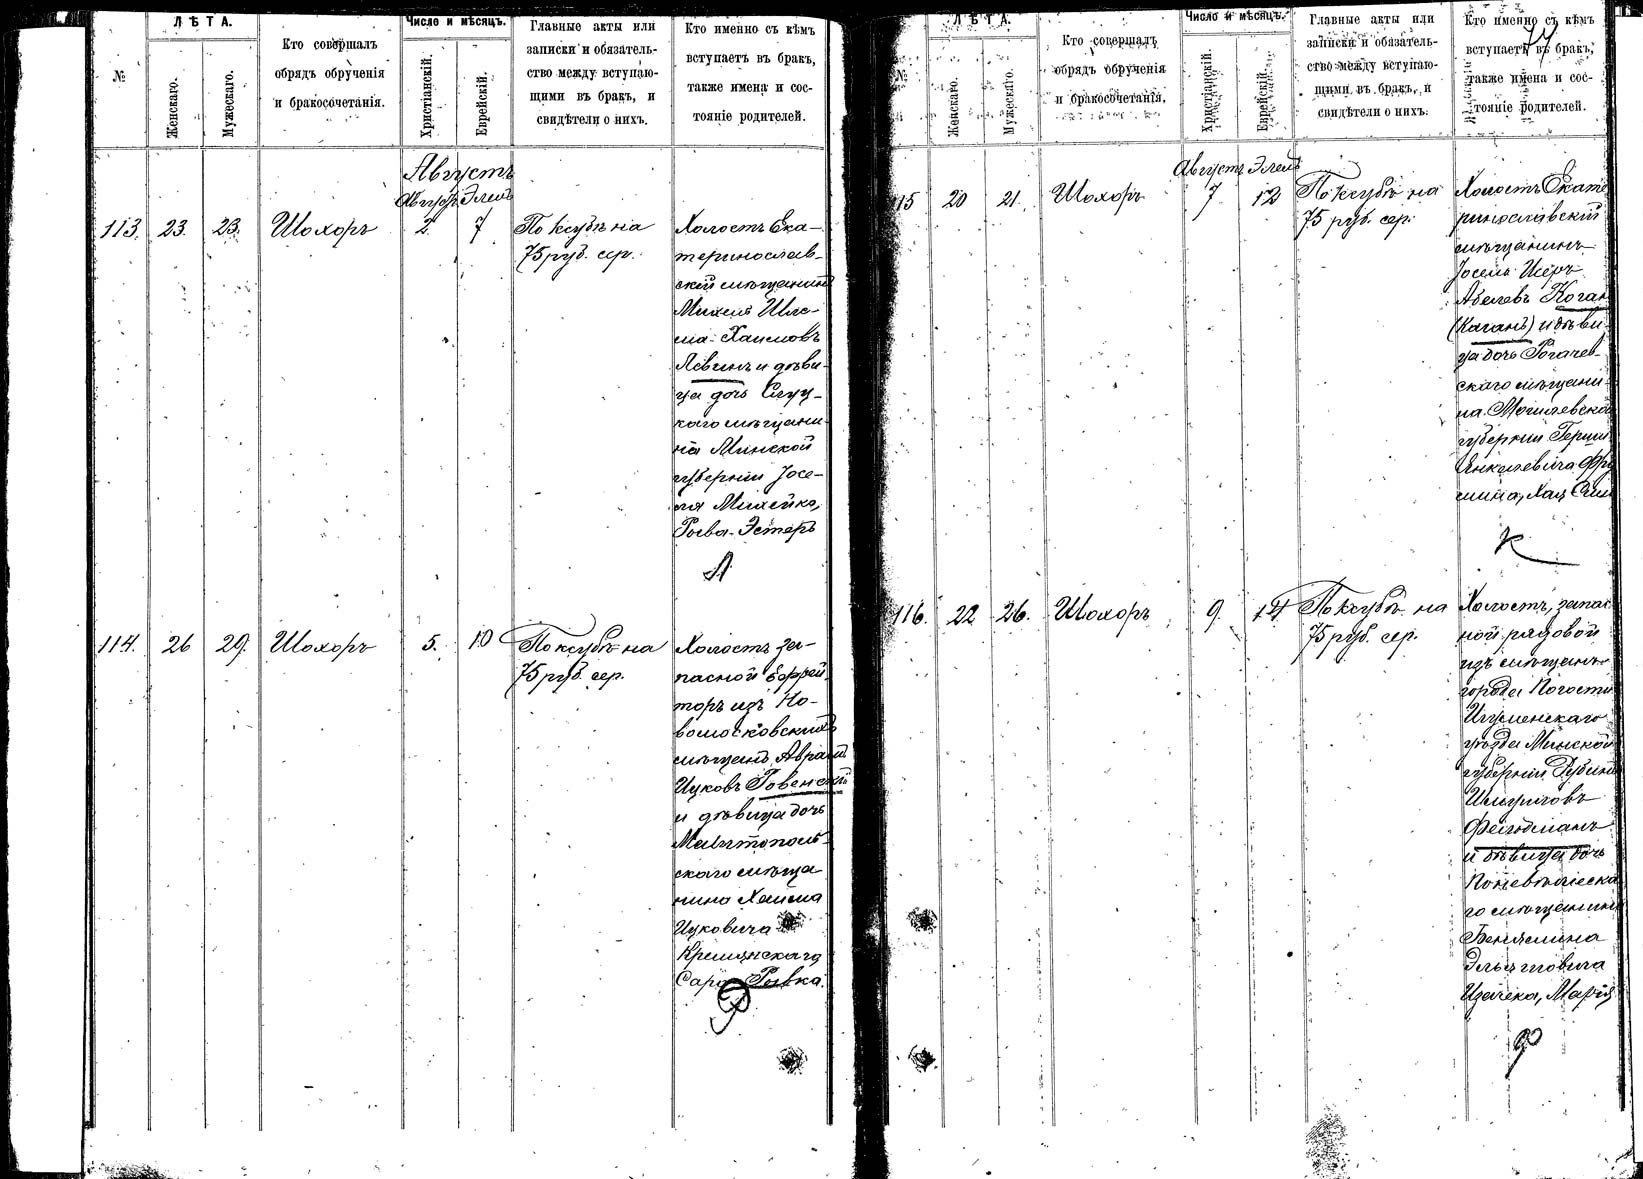 №
ЛѢТА.
Женскаго.
Мужескаго.
Кто совершалъ
обрядъ обрученія
и бракосочетанія.
Число и мѣсяцъ.
Христіанскій.
Еврейскій.
Главные акты или
записки и обязатель-
ство между вступаю-
щими въ бракъ, и
свидѣтели о нихъ.
Кто именно съ кѣмъ
вступаетъ въ бракъ,
также имена и сос-
тояніе родителей.
Августъ
Августъ Элелъ
113. 23. 23. Шохоръ 2 7
По ксубѣ на
75 руб. сер.
Холостъ Ека-
теринослав-
скій мѣщанинъ
Михель Шле-
ма Хаимовъ
Левинъ и дѣви-
ца дочь Слуц-
каго мѣщани-
на Минской
губерніи Іосе-
ля
Рыва-Эстеръ
Л
114. 26 29. Шохоръ 5. 10
По ксубѣ на
75 руб. сер.
Холостъ за-
пасной Ефрей-
торъ изъ Но-
вомосковскихъ
мѣщанъ Аврамъ
Ицковъ Ровенскій
и дѣвица дочь
Мелитополь-
скаго мѣща
нина Хаима
Ицковича
Сара Рывка.
Р
77
№
ЛѢТА.
Женскаго.
Мужескаго.
Кто совершалъ
обрядъ обрученія
и бракосочетанія.
Число и мѣсяцъ.
Христіанскій.
Еврейскій.
Главные акты или
записки и обязатель-
ство между вступаю-
щими въ бракъ, и
свидѣтели о нихъ.
Кто именно съ кѣмъ
вступаетъ въ бракъ,
также имена и сос-
тояніе родителей.
Августъ Элелъ
115 20 21. Шохоръ 7 12
По ксубѣ на
75 руб. сер.
Холостъ Екате
ринославскій
мѣщанинъ
Іосель
Абелевъ Коган
(Каганъ) и дѣви
ца дочь Рогачев-
скаго мѣщани-
на Могилевской
губерніи Герши
Янкелевича Фру
мина,
К
116. 22 26. Шохоръ 9. 14
По ксубѣ на
75 руб. сер.
Холостъ, запас
ной рядовой
изъ мѣщанъ
города Погоста
Игуменскаго
уѣзда Минской
губерніи Рубинъ
Фельдманъ
и дѣвица дочь
Поневѣжска
го мѣщанина
Беньямина
Эльяшовича
Марія
Ф